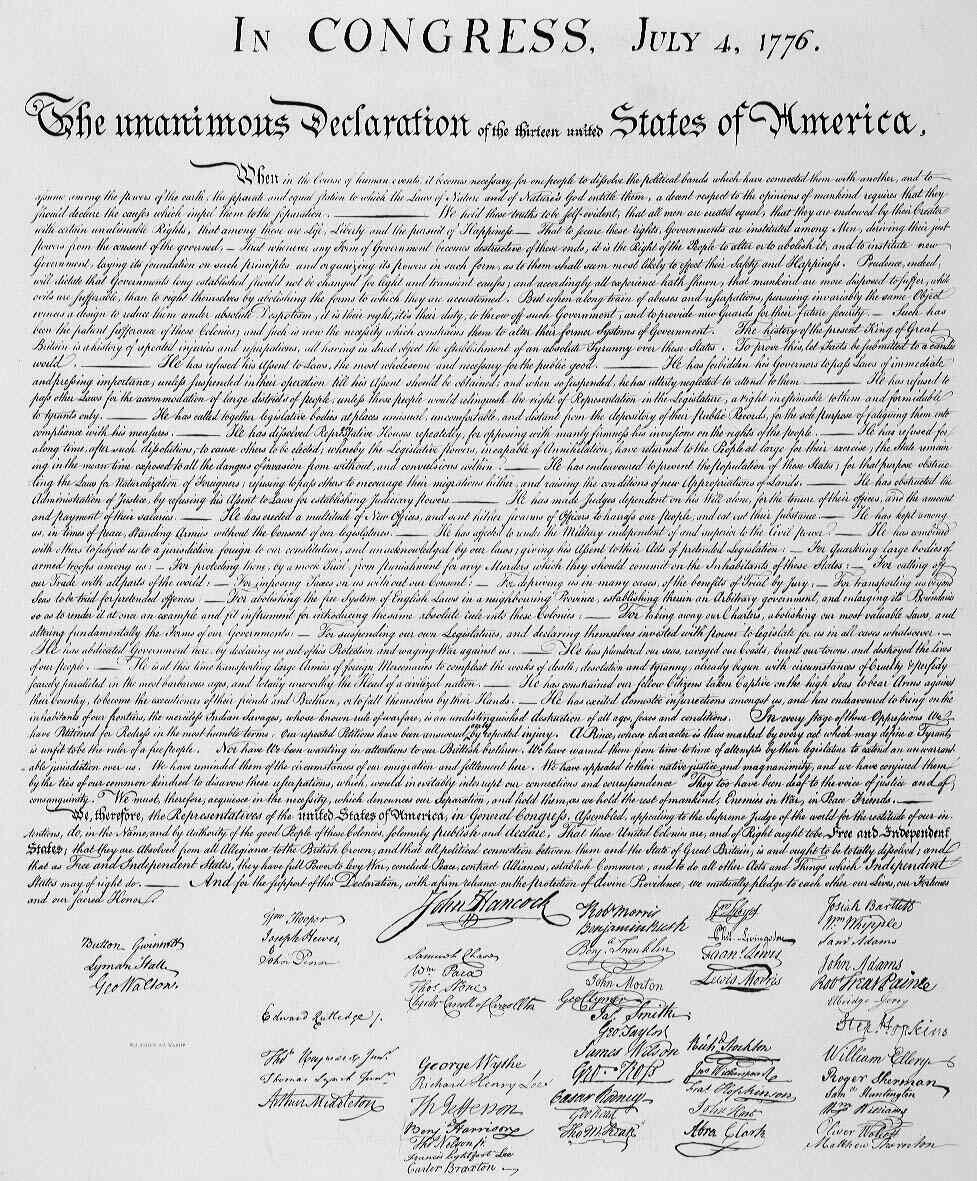 IN CONGRESS, JULY 4, 1776.
The unanimous Declaration of the thirteen united States of America,
When in the Course of human events, it becomes necessary for one people to dissolve the political bands which have connected them with another, and to
assume among the powers of the earth, the separate and equal station to which the Laws of Nature and of Nature's God entitle them, a decent respect to the opinions of mankind requires that they
should declare the causes which impel them to the separation. — We hold these truths to be self-evident, that all men are created equal, that they are endowed by their Creator
with certain unalienable Rights, that among these are Life, Liberty and the pursuit of Happiness. — That to secure these rights, Governments are instituted among Men, deriving their just
powers from the consent of the governed, — That whenever any Form of Government becomes destructive of these ends, it is the Right of the People to alter or to abolish it, and to institute new
Government, laying its foundation on such principles and organizing its powers in such form, as to them shall seem most likely to effect their Safety and Happiness. Prudence, indeed,
will dictate that Governments long established should not be changed for light and transient causes; and accordingly all experience hath shewn, that mankind are more disposed to suffer, while
evils are sufferable, than to right themselves by abolishing the forms to which they are accustomed. But when a long train of abuses and usurpations, pursuing invariably the same Object
evinces a design to reduce them under absolute Despotism, it is their right, it is their duty, to throw off such Government, and to provide new Guards for their future security. — Such has
been the patient sufferance of these Colonies; and such is now the necessity which constrains them to alter their former Systems of Government. The history of the present King of Great
Britain is a history of repeated injuries and usurpations, all having in direct object the establishment of an absolute Tyranny over these States. To prove this, let Facts be submitted to a candid
world. — He has refused his Assent to Laws, the most wholesome and necessary for the public good. — He has forbidden his Governors to pass Laws of immediate
and pressing importance, unless suspended in their operation till his Assent should be obtained; and when so suspended, he has utterly neglected to attend to them. — He has refused to
pass other Laws for the accommodation of large districts of people, unless those people would relinquish the right of Representation in the Legislature, a right inestimable to them and formidable
to tyrants only. — He has called together legislative bodies at places unusual, uncomfortable, and distant from the depository of their public Records, for the sole purpose of fatiguing them into
compliance with his measures. — He has dissolved Representative Houses repeatedly, for opposing with manly firmness his invasions on the rights of the people. — He has refused for
a long time, after such dissolutions, to cause others to be elected; whereby the Legislative powers, incapable of Annihilation, have returned to the People at large for their exercise; the State remain
ing in the mean time exposed to all the dangers of invasion from without, and convulsions within. — He has endeavoured to prevent the Population of these States; for that purpose obstruc-
ting the Laws for Naturalization of Foreigners; refusing to pass others to encourage their migrations hither, and raising the conditions of new Appropriations of Lands. — He has obstructed the
Administration of Justice, by refusing his Assent to Laws for establishing Judiciary powers. — He has made Judges dependent on his Will alone, for the tenure of their offices, and the amount
and payment of their salaries. — He has erected a multitude of New Offices, and sent hither swarms of Officers to harrass our people, and eat out their substance. — He has kept among
us, in times of peace, Standing Armies without the Consent of our legislatures. — He has affected to render the Military independent of and superior to the Civil power. — He has combined
with others to subject us to a jurisdiction foreign to our constitution, and unacknowledged by our laws; giving his Assent to their Acts of pretended Legislation: — For Quartering large bodies of
armed troops among us: — For protecting them, by a mock Trial, from punishment for any Murders which they should commit on the Inhabitants of these States: — For cutting off
our Trade with all parts of the world: — For imposing Taxes on us without our Consent: — For depriving us in many cases, of the benefits of Trial by jury: — For transporting us beyond
Seas to be tried for pretended offences — For abolishing the free System of English Laws in a neighbouring Province, establishing therein an Arbitrary government, and enlarging its Boundaries
so as to render it at once an example and fit instrument for introducing the same absolute rule into these Colonies: — For taking away our Charters, abolishing our most valuable Laws, and
altering fundamentally the Forms of our Governments: — For suspending our own Legislatures, and declaring themselves invested with power to legislate for us in all cases whatsoever. —
He has abdicated Government here, by declaring us out of his Protection and waging War against us. — He has plundered our seas, ravaged our Coasts, burnt our towns, and destroyed the lives
of our people. — He is at this time transporting large Armies of foreign Mercenaries to compleat the works of death, desolation and tyranny, already begun with circumstances of Cruelty & perfidy
scarcely paralleled in the most barbarous ages, and totally unworthy the Head of a civilized nation. — He has constrained our fellow Citizens taken Captive on the high Seas to bear Arms against
their Country, to become the executioners of their friends and Brethren, or to fall themselves by their Hands. — He has excited domestic insurrections amongst us, and has endeavoured to bring on the
inhabitants of our frontiers, the merciless Indian Savages, whose known rule of warfare, is an undistinguished destruction of all ages, sexes and conditions. In every stage of these Oppressions We
have Petitioned for Redress in the most humble terms: Our repeated Petitions have been answered by repeated injury. A Prince, whose character is thus marked by every act which may define a Tyrant,
is unfit to be the ruler of a free people. Nor have We been wanting in attentions to our Brittish brethren. We have warned them from time to time of attempts by their legislature to extend an unwarrant-
able jurisdiction over us. We have reminded them of the circumstances of our emigration and settlement here. We have appealed to their native justice and magnanimity, and we have conjured them
by the ties of our common kindred to disavow these usurpations, which, would inevitably interrupt our connections and correspondence. They too have been deaf to the voice of justice and of
consanguinity. We must, therefore, acquiesce in the necessity, which denounces our Separation, and hold them, as we hold the rest of mankind, Enemies in War, in Peace Friends. —
We, therefore, the Representatives of the united States of America, in General Congress, Assembled, appealing to the Supreme Judge of the world for the rectitude of our in-
tentions, do, in the Name, and by Authority of the good People of these Colonies, solemnly publish and declare, That these United Colonies are, and of Right ought to be Free and Independent
States; that they are Absolved from all Allegiance to the British Crown, and that all political connection between them and the State of Great Britain, is and ought to be totally dissolved; and
that as Free and Independent States, they have full Power to levy War, conclude Peace, contract Alliances, establish Commerce, and to do all other Acts and Things which Independent
States may of right do. — And for the support of this Declaration, with a firm reliance on the protection of divine Providence, we mutually pledge to each other our Lives, our Fortunes
and our sacred Honor.
Button Gwinnett
Lyman Hall
Geo Walton.
Wm Hooper
Joseph Hewes,
John Penn
Edward Rutledge.
Thos Heyward Junr.
Thomas Lynch Junr.
Arthur Middleton
John Hancock
Samuel Chase
Wm Paca
Thos Stone
Charles Carroll of Carrollton
George Wythe
Richard Henry Lee
Th Jefferson
Benj Harrison
Thos Nelson jr.
Francis Lightfoot Lee
Carter Braxton
Robt Morris
Benjamin Rush
Benja Franklin
John Morton
Geo Clymer
Jas Smith
Geo Taylor
James Wilson
Geo. Ross
Caesar Rodney
Geo Read
Tho M:Kean
Wm Floyd
Phil. Livingston
Frans. Lewis
Lewis Morris
Richd. Stockton
Jno Witherspoon
Fras. Hopkinson
John Hart
Abra Clark
Josiah Bartlett
Wm Whipple
Saml Adams
John Adams
Robt Treat Paine
Elbridge Gerry
Step. Hopkins
William Ellery
Roger Sherman
Saml Huntington
Wm Williams
Oliver Wolcott
Matthew Thornton